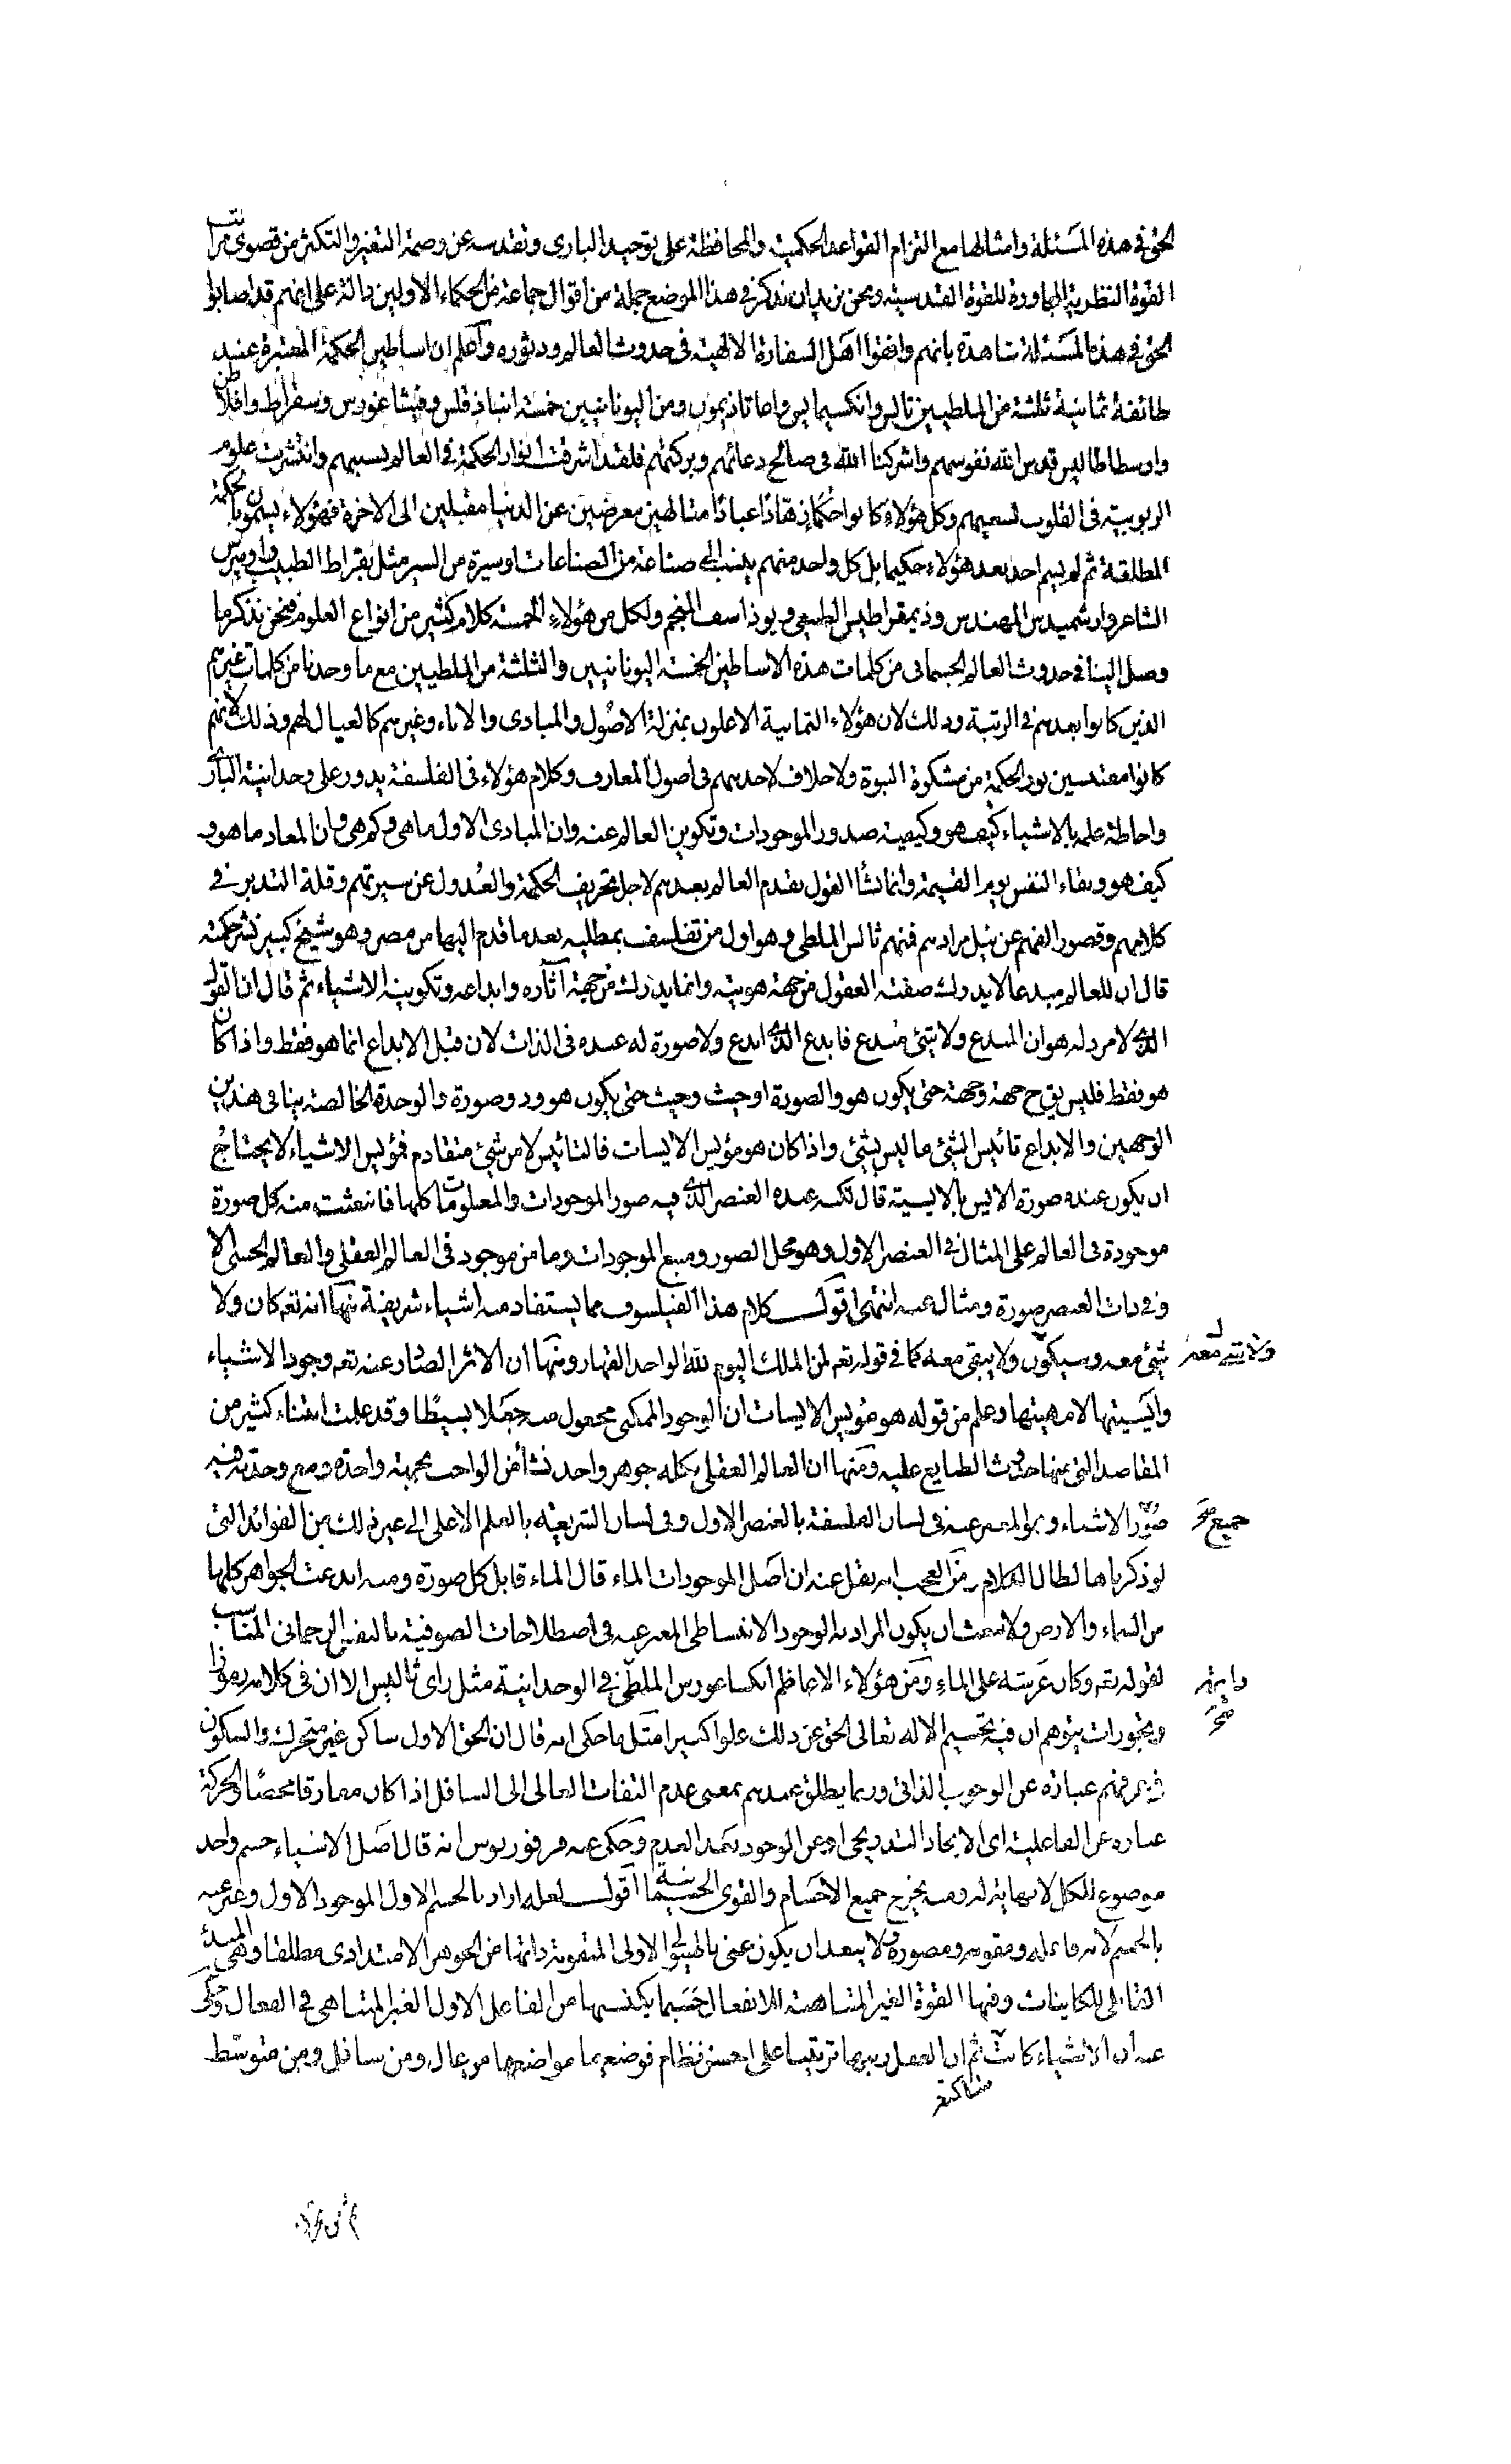 الحق فى هذه المسئلة وامثالها مع التزام القواعد الحكمية والمحافظة على توحيد البارى وتقدسه عن وصمة التغير والتكثر من قصوى مراتب
القوة النظرية المجاورة للقوة القدسية ونحن نريد ان نذكر فى هذا الموضع جملة من اقوال جماعة من الحكماء الاولين دالة على انهم قد اصابوا
الحق فى هذه المسئلة شاهدة بانهم وافقوا اهل السفارة الالهية فى حدوث العالم ودثوره واعلم ان اساطين الحكمة المعتبرة عند
طائفة ثمانية ثلثة من الملطيين ثالس وانكسيمايس واغاثاذيمون ومن اليونانيين خمسة انباذقلس وفيثاغورس وسقراط وافلاطن
وارسطاطاليس قدس الله نفوسهم واشركنا الله فى صالح دعائهم وبركتهم فلقد اشرقت انوار الحكمة فى العالم بسببهم وانتشرت علوم
الربوبية فى القلوب لسعيهم وكل هؤلاء كانوا حكما زهادا عبادا متالهين معرضين عن الدنيا مقبلين الى الاخرة فهؤلاء يسمون بالحكمة
المطلقة ثم لم يسم احد بعد هؤلاء حكيما بل كل واحد منهم ينسب الى صناعة من الصناعات او سيرة من السير مثل بقراط الطبيب واوميرس
الشاعر وارشميدس المهندس وذيمقراطيس الطبيعى ويوذاسف المنجم ولكل من هؤلاء الخمسة كلام كثير من انواع العلوم فنحن نذكر ما
وصل الينا فى حدوث العالم الجسمانى من كلمات هذه الاساطين الخمسة اليونانيين والثلثة من الملطيين مع ما وجدنا من كلمات غيرهم
الذين كانوا بعدهم فى الرتبة وذلك لان هؤلاء الثمانية الاعلون بمنزلة الاصول والمبادى والاباء وغيرهم كالعيال لهم وذلك لانهم
كانوا مقتبسين نور الحكمة من مشكوة النبوة ولا خلاف لاحد منهم فى اصول المعارف وكلام هؤلاء فى الفلسفة يدور على وحدانية البارى
واحاطة علمه بالاشياء كيف هو وكيفية صدور الموجودات وتكوين العالم عنه وان المبادى الاول ما هى وكم هى وان المعاد ما هو و
كيف هو وبقاء النفس يوم القيمة وانما نشأ القول بقدم العالم بعدهم لاجل تحريف الحكمة والعدول عن سيرتهم وقلة التدبر فى
كلامهم وقصور الفهم عن نيل مرادهم فمنهم ثالس الملطى وهو اول من تفلسف بملطيه بعد ما قدم اليها من مصر وهو شيخ كبير نشر حكمته
قال ان للعالم مبدعا لا يدرك صفته العقول من جهة هويته وانما يدرك من جهة آثاره وابداعه وتكوينه الاشياء ثم قال ان القول
الذى لا مرد له هو ان المبدع ولا شئ مبدع فابدع الذى ابدع ولا صورة له عنده فى الذات لان قبل الابداع انما هو فقط واذا كان
هو فقط فليس يق ح جهة وجهة حتى يكون هو والصورة او حيث وحيث حتى يكون هو وذو صورة والوحدة الخالصة ينافى هذين
الوجهين والابداع تائيس الشئ ما ليس بشئ واذا كان هو مؤيس الايسات فالتائيس لا من شئ متقادم فمؤيس الاشياء لا يحتاج
ان يكون عنده صورة الايس بالايسية قال لكنه عنده العنصر الذى فيه صور الموجودات والمعلومات كلها فانبعثت منه كل صورة
موجودة فى العالم على المثال فى العنصر الاول وهو محل الصور ومنبع الموجودات وما من موجود فى العالم العقلى والعالم الحسى الا
وفى ذات العنصر صورة ومثال عنه انتهى اقول كلام هذا الفيلسوف مما يستفاد منه اشياء شريفة منها انه تعه كان ولا
شئ معه وسيكون ولا يبقى معه كما فى قوله تعه لمن الملك اليوم لله الواحد القهار ومنها ان الاثر الصادر عنه تعه وجود الاشياء
ولا شئ معه
وايسيتها لا مهيتها وعلم من قوله هو مؤيس الايسات ان الوجود الممكنى مجعول منه جعلا بسيطا وقد علمت ابتناء كثير من
المقاصد التى منها حدوث الطبايع عليه ومنها ان العالم العقلى بكله جوهر واحد نشأ من الواجب بجهة واحدة ومع وحدته فيه
صور الاشياء وهو المعبر عنه فى لسان الفلسفة بالعنصر الاول وفى لسان الشريعة بالعلم الاعلى الى غير ذلك من الفوائد التى
جميع صح
لو ذكرناها لطال الكلام ومن العجب انه نقل عنه ان اصل الموجودات الماء قال الماء قابل كل صورة ومنه ابدعت الجواهر كلها
من السماء والارض ولا يبعث ان يكون المراد به الوجود الانبساطى المعبر عنه فى اصطلاحات الصوفية بالنفس الرحمانى المناسب
لقوله تعه وكان عرشه على الماء ومن هؤلاء الاعاظم انكساغورس الملطى فى الوحدانية مثل راى ثاليس الا ان فى كلامه رموزا
وتجوزات يتوهم ان فيه تجسيم الاله تعالى الحق عن ذلك علوا كبيرا مثل ما حكى انه قال ان الحق الاول ساكن غير متحرك والسكون
فى عرفهم عبارة عن الوجوب الذاتى وربما يطلق عندهم بمعنى عدم التفات العالى الى السافل اذا كان مفارقا محضا والحركة
عبارة عن الفاعلية اى الايجاد التدريجى او عن الوجود بعد العدم وحكى عنه فرفوريوس انه قال اصل الاشياء جسم واحد
موضوع للكل لا نهاية له ومنه يخرج جميع الاجسام والقوى الجسمانية اقول لعله اراد بالجسم الاول الموجود الاول وعبر عنه
بالجسم لانه فاعله ومقومه ومصوره ولا يبعد ان يكون عنى بالهيولى الاولى المتقومة ذاتها من الجوهر الامتدادى مطلقا وهى المبدء
القابلى للكاينات وفيها القوة الغير المتناهية الانفعال حسبما يكتسبها من الفاعل الاول الغير المتناهى فى الفعال وحكى
عنه ان الاشياء كانت ثم ان العقل رتبها ترتيبا على احسن نظام فوضعها مواضعها من عال ومن سافل ومن متوسط
ساكنة